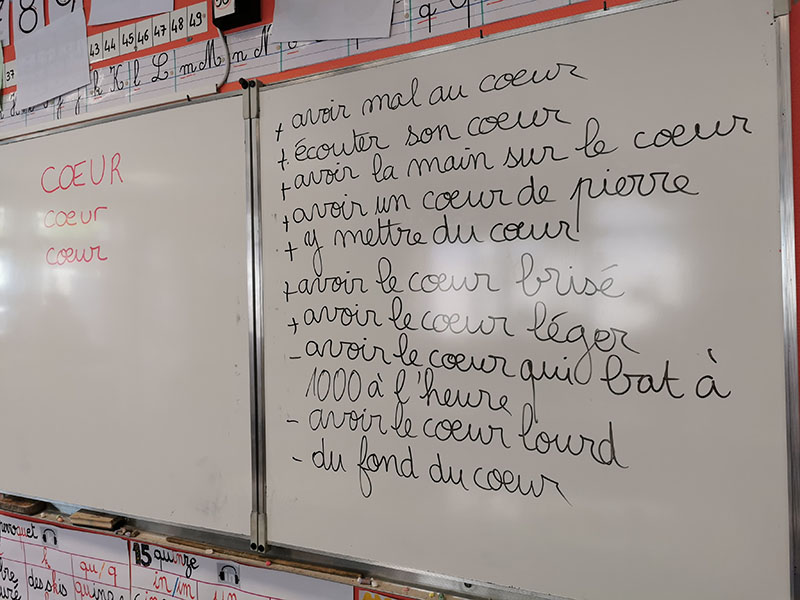 43 44 45 46 47 48 49
37
k K l L m M n N
q Q
COEUR
coeur
coeur
+ avoir mal au coeur
+ écouter son coeur
+ avoir la main sur le coeur
+ avoir un coeur de pierre
+ y mettre du coeur
+ avoir le coeur brisé
+ avoir le coeur léger
- avoir le coeur qui bat à
1000 à l'heure
- avoir le coeur lourd
- du fond du coeur
15 quinze
k qu/q in/im
des skis